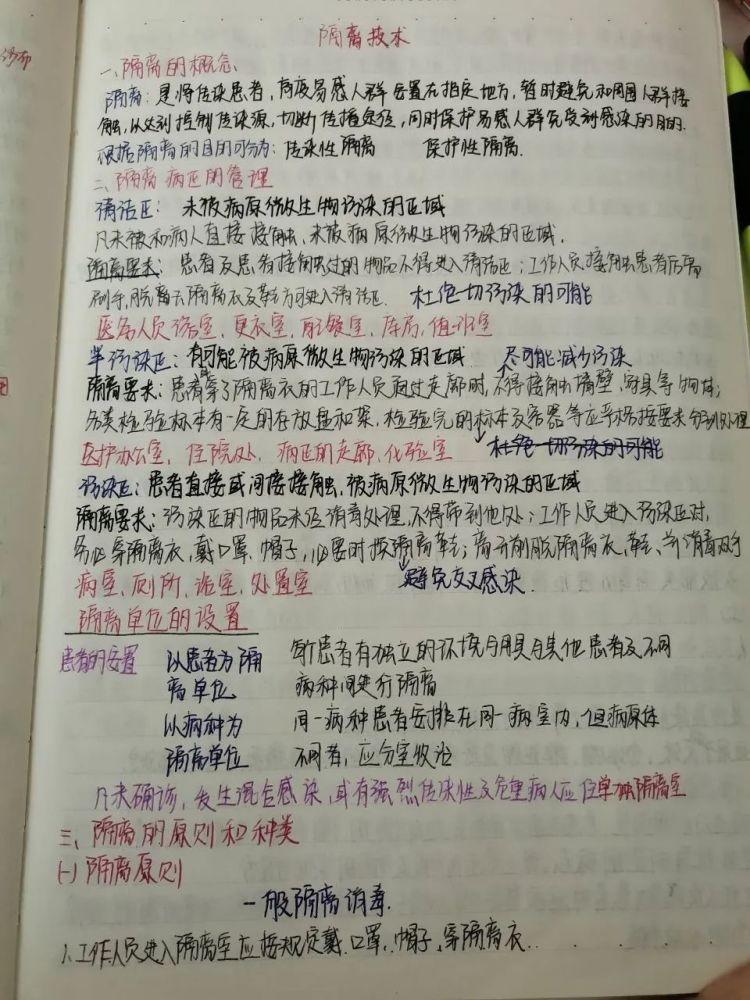 隔离技术
一、隔离的概念
隔离：是将传染患者，高度易感人群安置在指定地方，暂时避免和周围人群接
触，以达到控制传染源，切断传播途径，同时保护易感人群免受到感染的目的.
根据隔离的目的可分为：传染性隔离 保护性隔离.
二、隔离病区的管理
清洁区： 未被病原微生物污染的区域
凡未被和病人直接接触、未被病原微生物污染的区域.
隔离要求：患者及患者接触过的物品不得进入清洁区；工作人员接触患者后需
刷手，脱离去隔离衣及鞋方可进入清洁区. 杜绝一切污染的可能
医务人员浴室、更衣室、配餐室、库房、值班室
半污染区：有可能被病原微生物污染的区域 尽可能减少污染
隔离要求：患者穿了隔离衣的工作人员通过走廊时，不得接触墙壁，家具等物体；
各类检验标本有一定的存放盘和架，检验完的标本及容器等应严格按要求分别处理
医护办公室、住院处、病区的走廊、化验室 杜绝一切污染的可能
污染区：患者直接或间接接触，被病原微生物污染的区域
隔离要求：污染区的物品未经消毒处理，不得带到他处；工作人员进入污染区时，
务必穿隔离衣，戴口罩、帽子，必要时换隔离鞋；离开前脱隔离衣、鞋、并消毒双手
病室、厕所、浴室、处置室 避免交叉感染.
隔离单位的设置
患者的安置 以患者为隔 每个患者有独立的环境与用具与其他患者及不同
离单位 病种间进行隔离
以病种为 同一病种患者安排在同一病室内，但病原体
隔离单位 不同者，应分室收治
凡未确诊，发生混合感染，或有强烈传染性及危重病人应住单独隔离室
三、隔离的原则和种类
(一)隔离原则
一般隔离消毒.
1、工作人员进入隔离室应按规定戴、口罩、帽子、穿隔离衣.